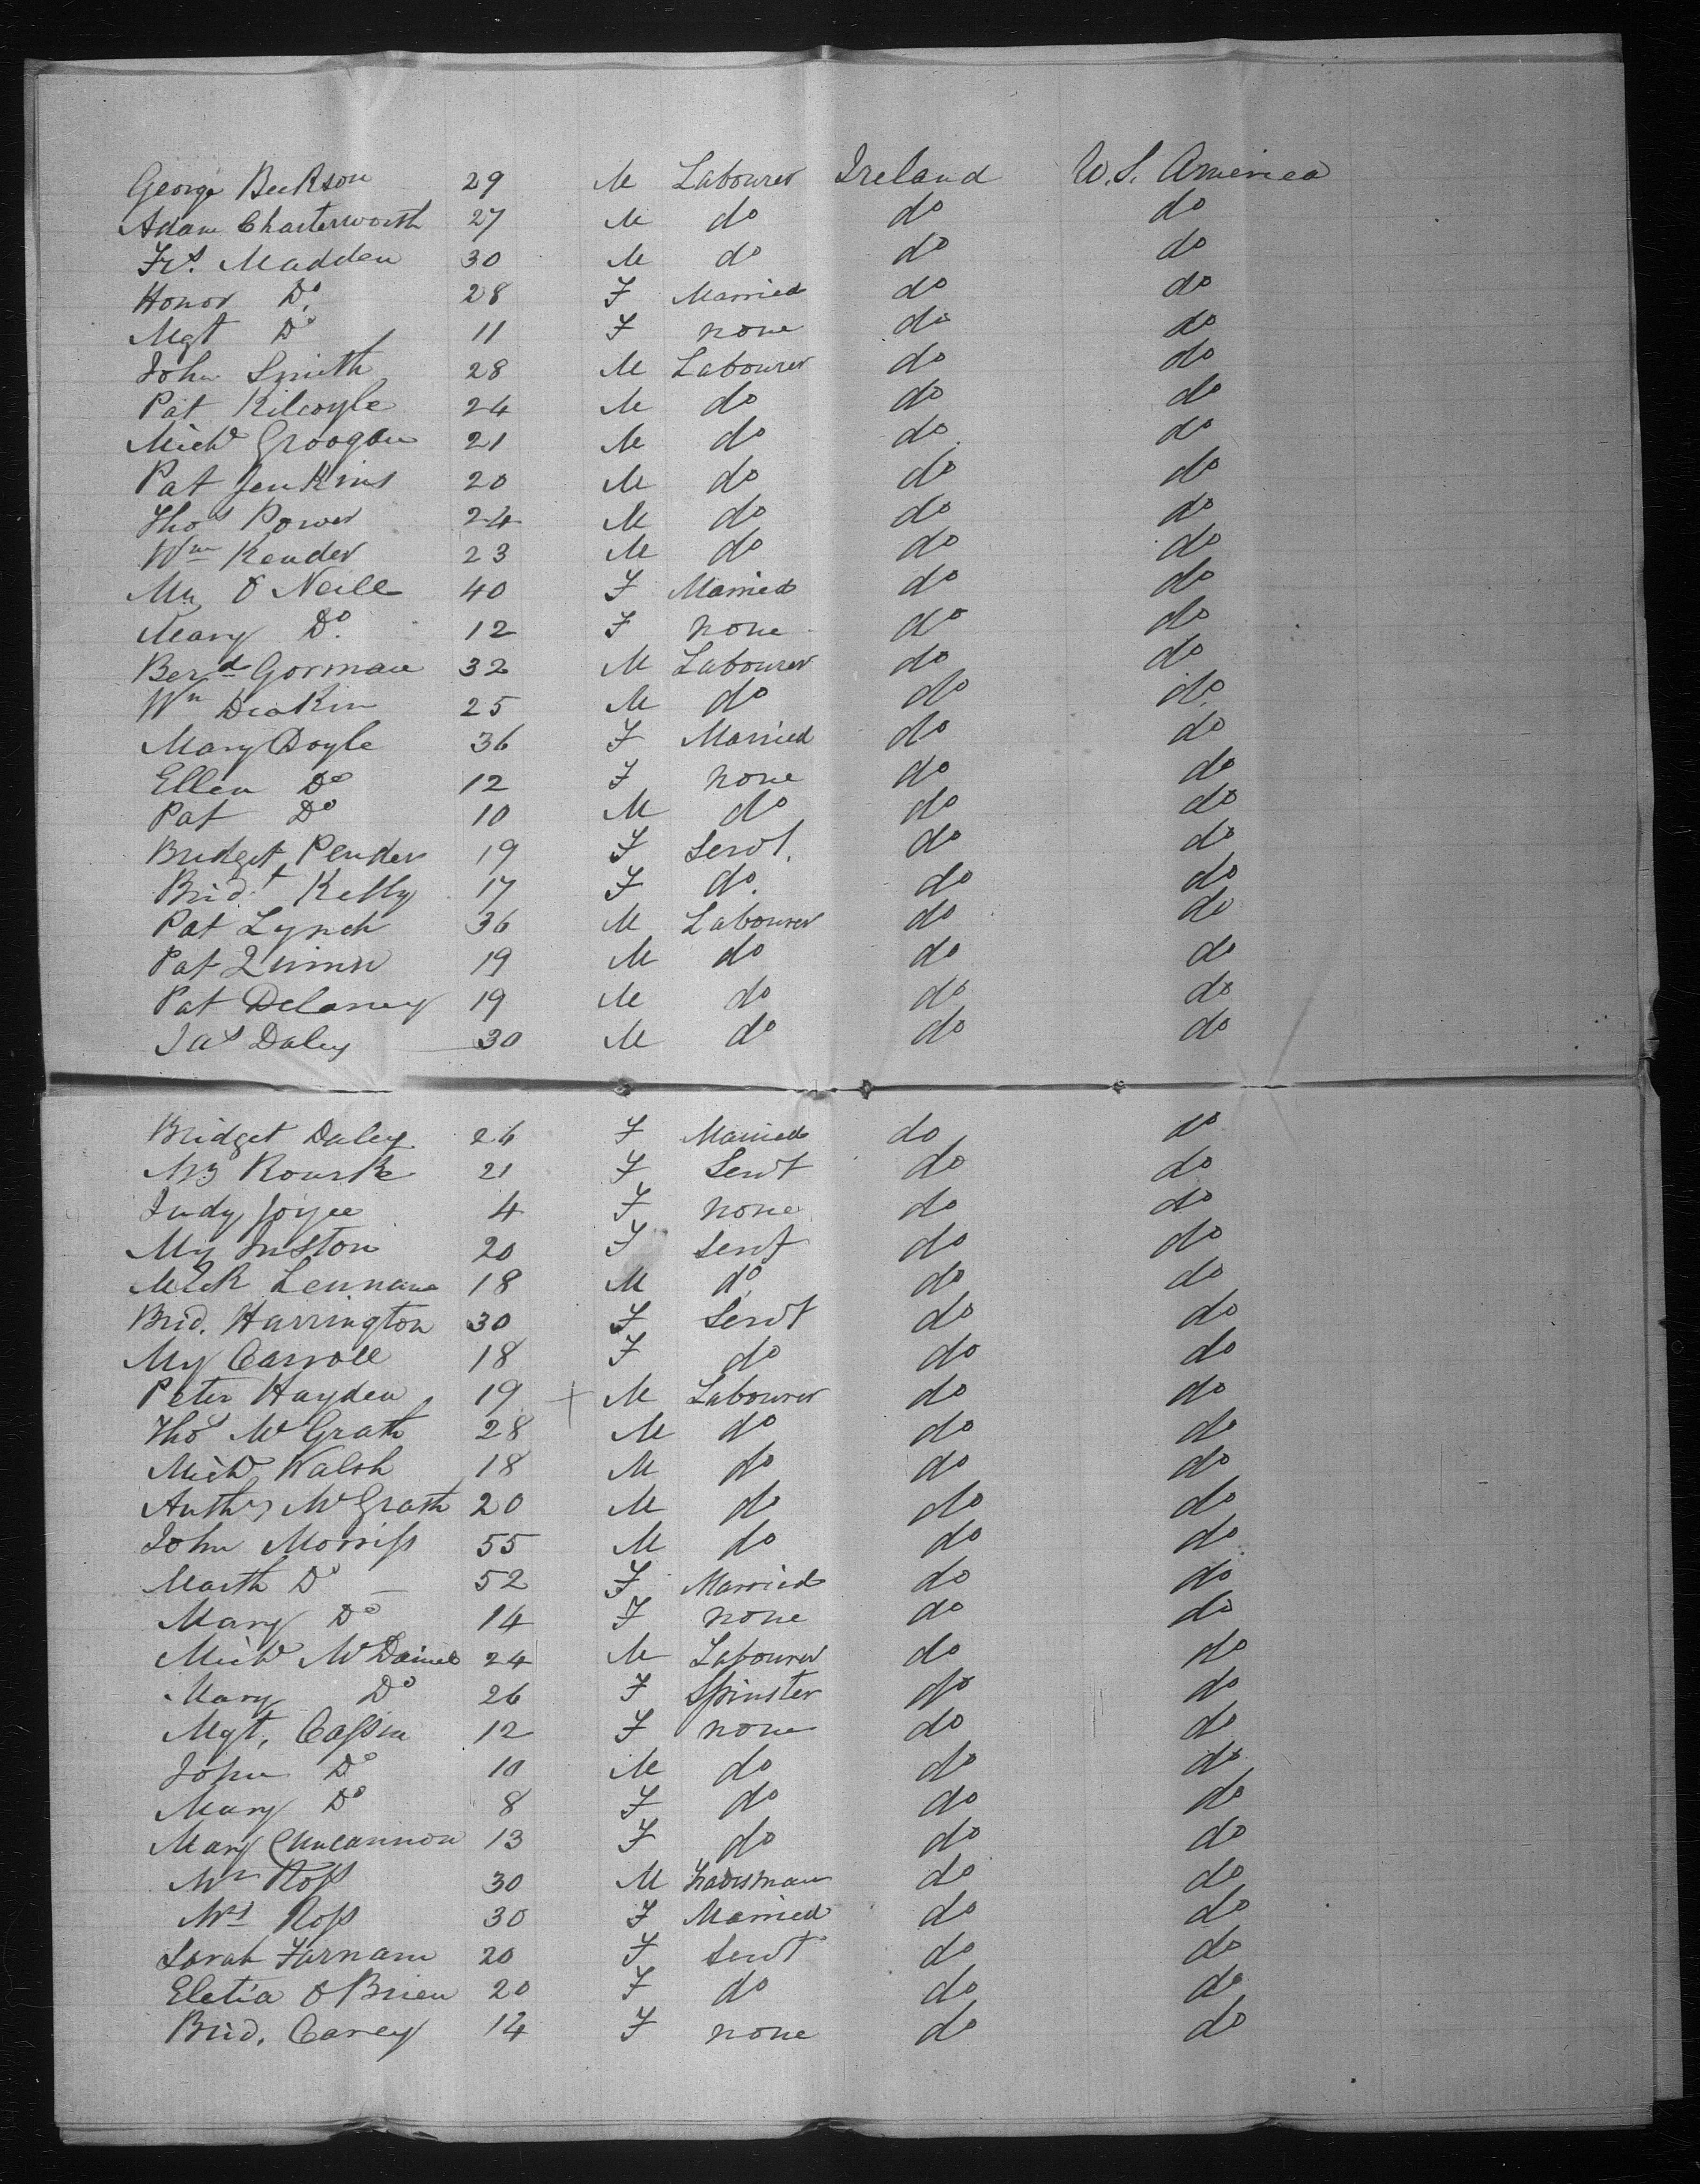 George Beekson 29 M Labourer Ireland U.S. America
Adam Charterworth 27 M do do do
Frs. Madden 30 M do do do
Honor Do. 28 F Married do do
Mgt Do 11 F none do do
John Smith 28 M Labourer do do
Pat Kilcoyle 24 M do do do
Michl Groogan 21 M do do do
Pat Jenkins 20 M do do do
Thos Power 24 M do do do
Wm Kender 23 M do do do
My O Neill 40 F Married do do
Mary Do. 12 F none do do
Berd Gorman 32 M Labourer do do
Wm Deakin 25 M do do do
Mary Doyle 36 F Married do do
Ellen Do 12 F none do do
Pat Do 10 M do do do
Bridget Pender 19 F Servt. do do
Bridt Kelly 17 F do. do do
Pat Lynch 36 M Labourer do do
Pat Quinn 19 M do do do
Pat Delaney 19 M do do do
Jas Daley 30 M do do do
Bridget Daley 26 F Married do do
Rourke 21 F Servt do do
Judy Joyce 4 F none do do
My Inston 20 F Servt do do
Lennane 18 M do do do
Brid. Harrington 30 F Servt do do
My Carroll 18 F do do do
Peter Hayden 19 + M Labourer do do
Thos McGrath 28 M do do do
Michl Walsh 18 M do do do
Anthy McGrath 20 M do do do
John Morriss 55 M do do do
Marth Do — 52 F Married do do
Mary Do 14 F none do do
Michl McDaniel 24 M Labourer do do
Mary Do 26 F Spinster do do
Mgt. Cassin 12 F none do do
John Do 10 M do do do
Mary Do 8 F do do do
Mary 13 F do do do
Mr Ross 30 M Tradesman do do
Mrs Ross 30 F Married do do
Sarah Farnam 20 F Servt do do
Eletia O Brien 20 F do do do
Brid. Carey 14 F none do do